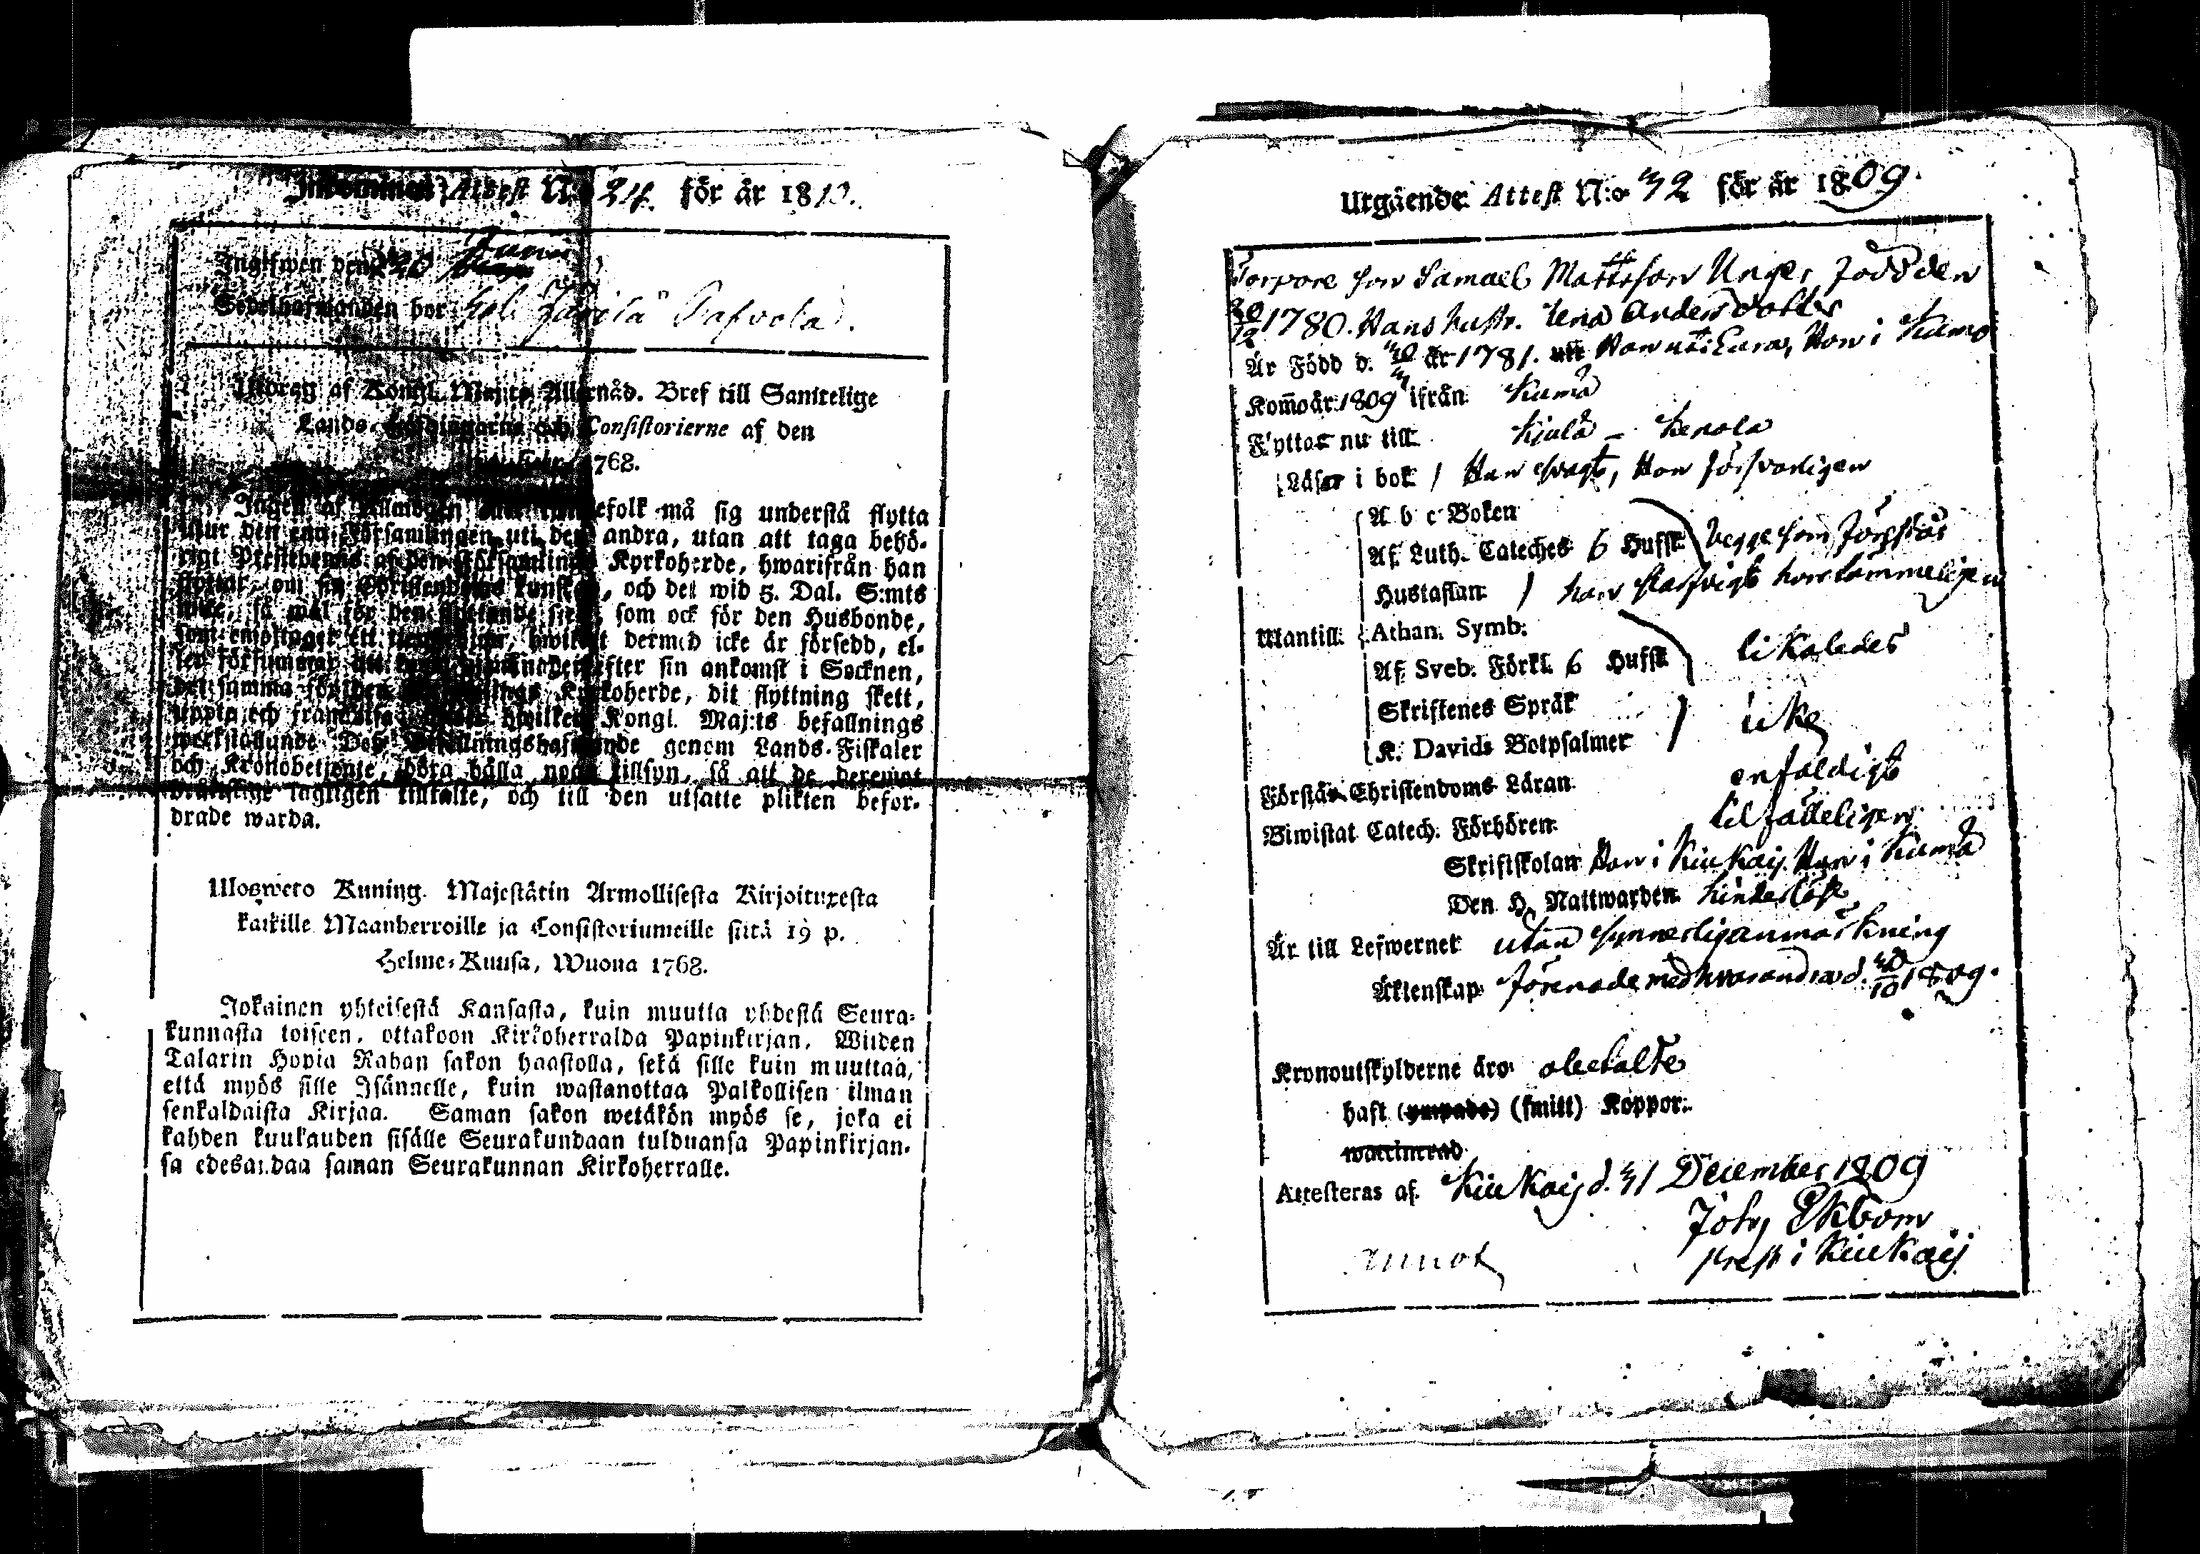 Attest N:o 24. för år 1810.
Ingifwen den 20 Junii
Sedelhafwanden bor
Utdrag af Kongl. Maj:ts Allernåd. Bref till Samtelige
Lands-Höfdingarne och Consistorierne af den
1768.
Ingen af Allmogen eller Tjenstefolk må sig understå flytta
utur den ena Församlingen uti den andra, utan att taga behö-
rigt Prestbewis af den Församlings Kyrkoherde, hwarifrån han
flyttar, om sin Christendoms kunskap, och det wid 5. Dal. S:mts
wite, så wäl för den flyttande sielf, som ock för den Husbonde,
som emottager ett tienstehion, hwilket dermed icke är försedd, el-
ler försummar att inom twå månader efter sin ankomst i Socknen,
det samma för den Församlings Kyrkoherde, dit flyttning skett,
uppte och framwisa; hwilket Kongl. Maj:ts befallnings
werkställande Dess Befallningshafwande genom Lands-Fiskaler
och Kronobetjente, böra hålla noga tillsyn, så att de deremot
bråtslige lagligen tilltalte, och till den utsatte plikten befor-
drade warda.
Uloswero Kuning. Majestätin Armollisesta Kirjoituxesta
kaikille Maanherroille ja Consistoriumeille siitä 19 p.
Helme-Kuusa, Wuona 1768.
Jokainen yhteisestä Kansasta, kuin muutta yhdestä Seura-
kunnasta toiseen, ottakoon Kirkoherralda Papinkirjan, Wiiden
Talarin Hopia Rahan sakon haastolla, sekä sille kuin muuttaa,
että myös sille Isännelle, kuin wastanottaa Palkollisen ilman
senkaldaista Kirjaa. Saman sakon wetäkön myös se, joka ei
kahden kuukauden sisälle Seurakundaan tulduansa Papinkirjan-
sa edesandaa saman Seurakunnan Kirkoherralle.
Utgående Attest N:o 32 för år 1809.
Torpare son Samuel Mattsson Unger född den
20/12 1780. Hans hustr. Lena Andersdotter
Är Född d. 30/3 år 1781. Han uti Eura, Hon i Kumo
Kom̄o år 1809 ifrån Kumo
Flyttar nu till Kjulo - Kerola
Läser i bok Han swagt, Hon försvarligen
A b c Boken
Af Luth. Cateches 6 Hufst. begge som förstår
Hustaflan han slarfvigt hon lämmeligen
Utantill: Athan. Symb.
Af Sveb. Förkl. 6 Hufst. likaledes
Skriftenes Språk
K. Davids Botpsalmer icke
Förstår Christendoms Läran enfaldigt
Biwistat Catech. Förhören tilfälleligen
Skriftskolan Han i Kiukais Hon i Kumo
Den H. Nattwarden hinderlöst
Är till Lefwernet utan synnerlig anmärkning
Äktenskap förenade med hwarandra d. 30/10 1809.
Kronoutskylderne äro obetalte
haft (ympade) (smitt) Koppor.
waccinerad
Attesteras af. Kiukais d. 31 December 1809
Joh. Ekbom
prest i Kiukais